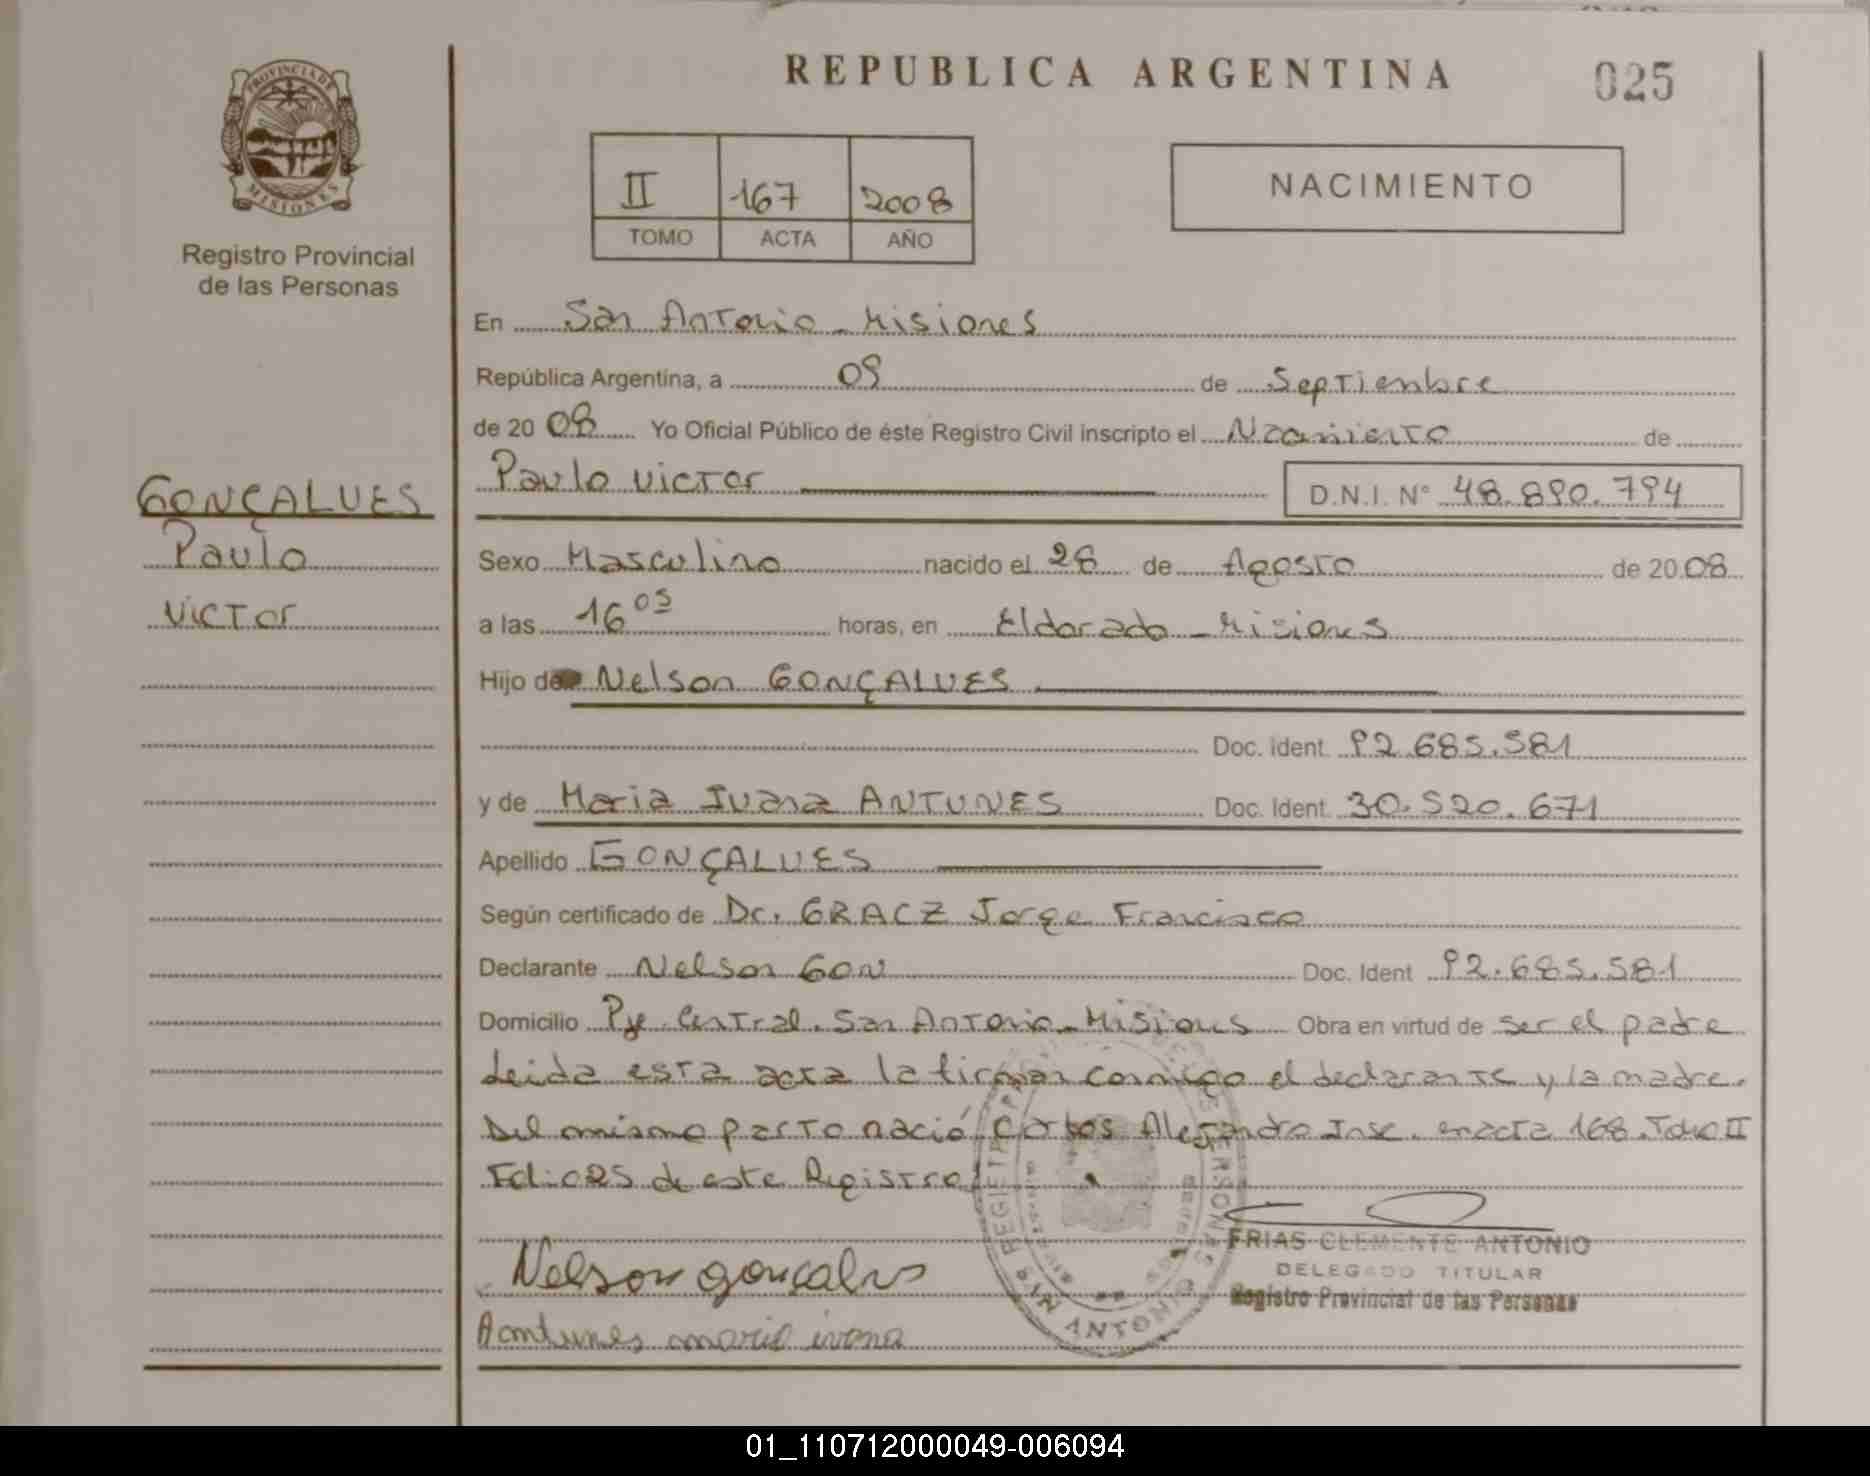 REPUBLICA ARGENTINA
025
PROVINCIA DE
MISIONES
Registro Provincial
de las Personas
II 167 2008
TOMO ACTA AÑO
NACIMIENTO
En San Antonio - Misiones
República Argentina, a 09 de Septiembre
de 20 08 Yo Oficial Público de éste Registro Civil inscripto el Nacimiento de
Paulo Victor D.N.I. N° 48.890.794
GONÇALVES
Paulo
Victor
Sexo Masculino nacido el 28 de Agosto de 20 08
a las 16 05 horas, en Eldorado - Misiones
Hijo de Nelson GONÇALVES
Doc. Ident. 92.685.581
y de Maria Ivana ANTUNES Doc. Ident. 30.520.671
Apellido GONÇALVES
Según certificado de Dr. GRACZ Jorge Francisco
Declarante Nelson GON Doc. Ident 92.685.581
Domicilio Pje. Central. San Antonio - Misiones Obra en virtud de ser el padre
Leida esta acta la firman conmigo el declarante y la madre.
Del mismo parto nació Carlos Alejandro Insc. en acta 168. Tomo II
Folio 025 de este Registro
Nelson gonçalves
Aantunes maria ivana
SAN ANTONIO
FRIAS CLEMENTE ANTONIO
DELEGADO TITULAR
Registro Provincial de las Personas
01_110712000049-006094